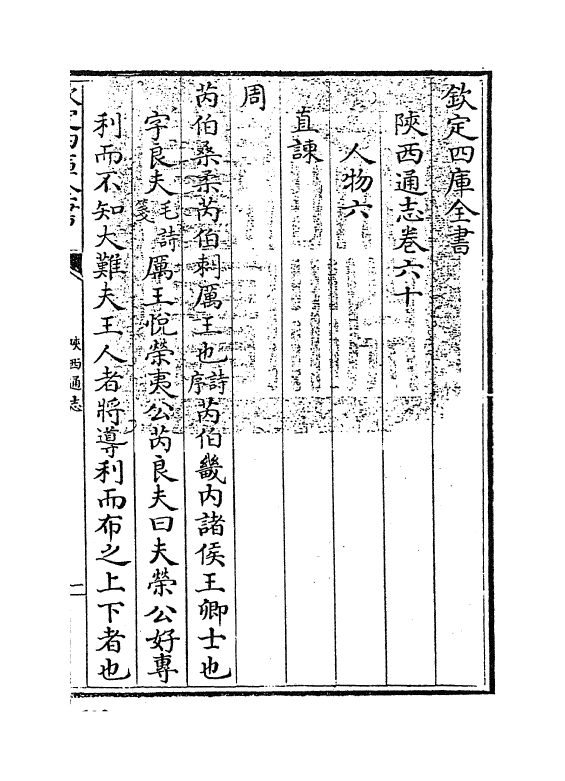 欽定四庫全書
陝西通志卷六十
人物六
直諫
周
芮伯桑柔芮伯刺厲王也詩序芮伯畿内諸侯王卿士也
字良夫毛詩箋厲王悅榮夷公芮良夫曰夫榮公好專
利而不知大難夫王人者將導利而布之上下者也
欽定四庫全書
陝西通志
一